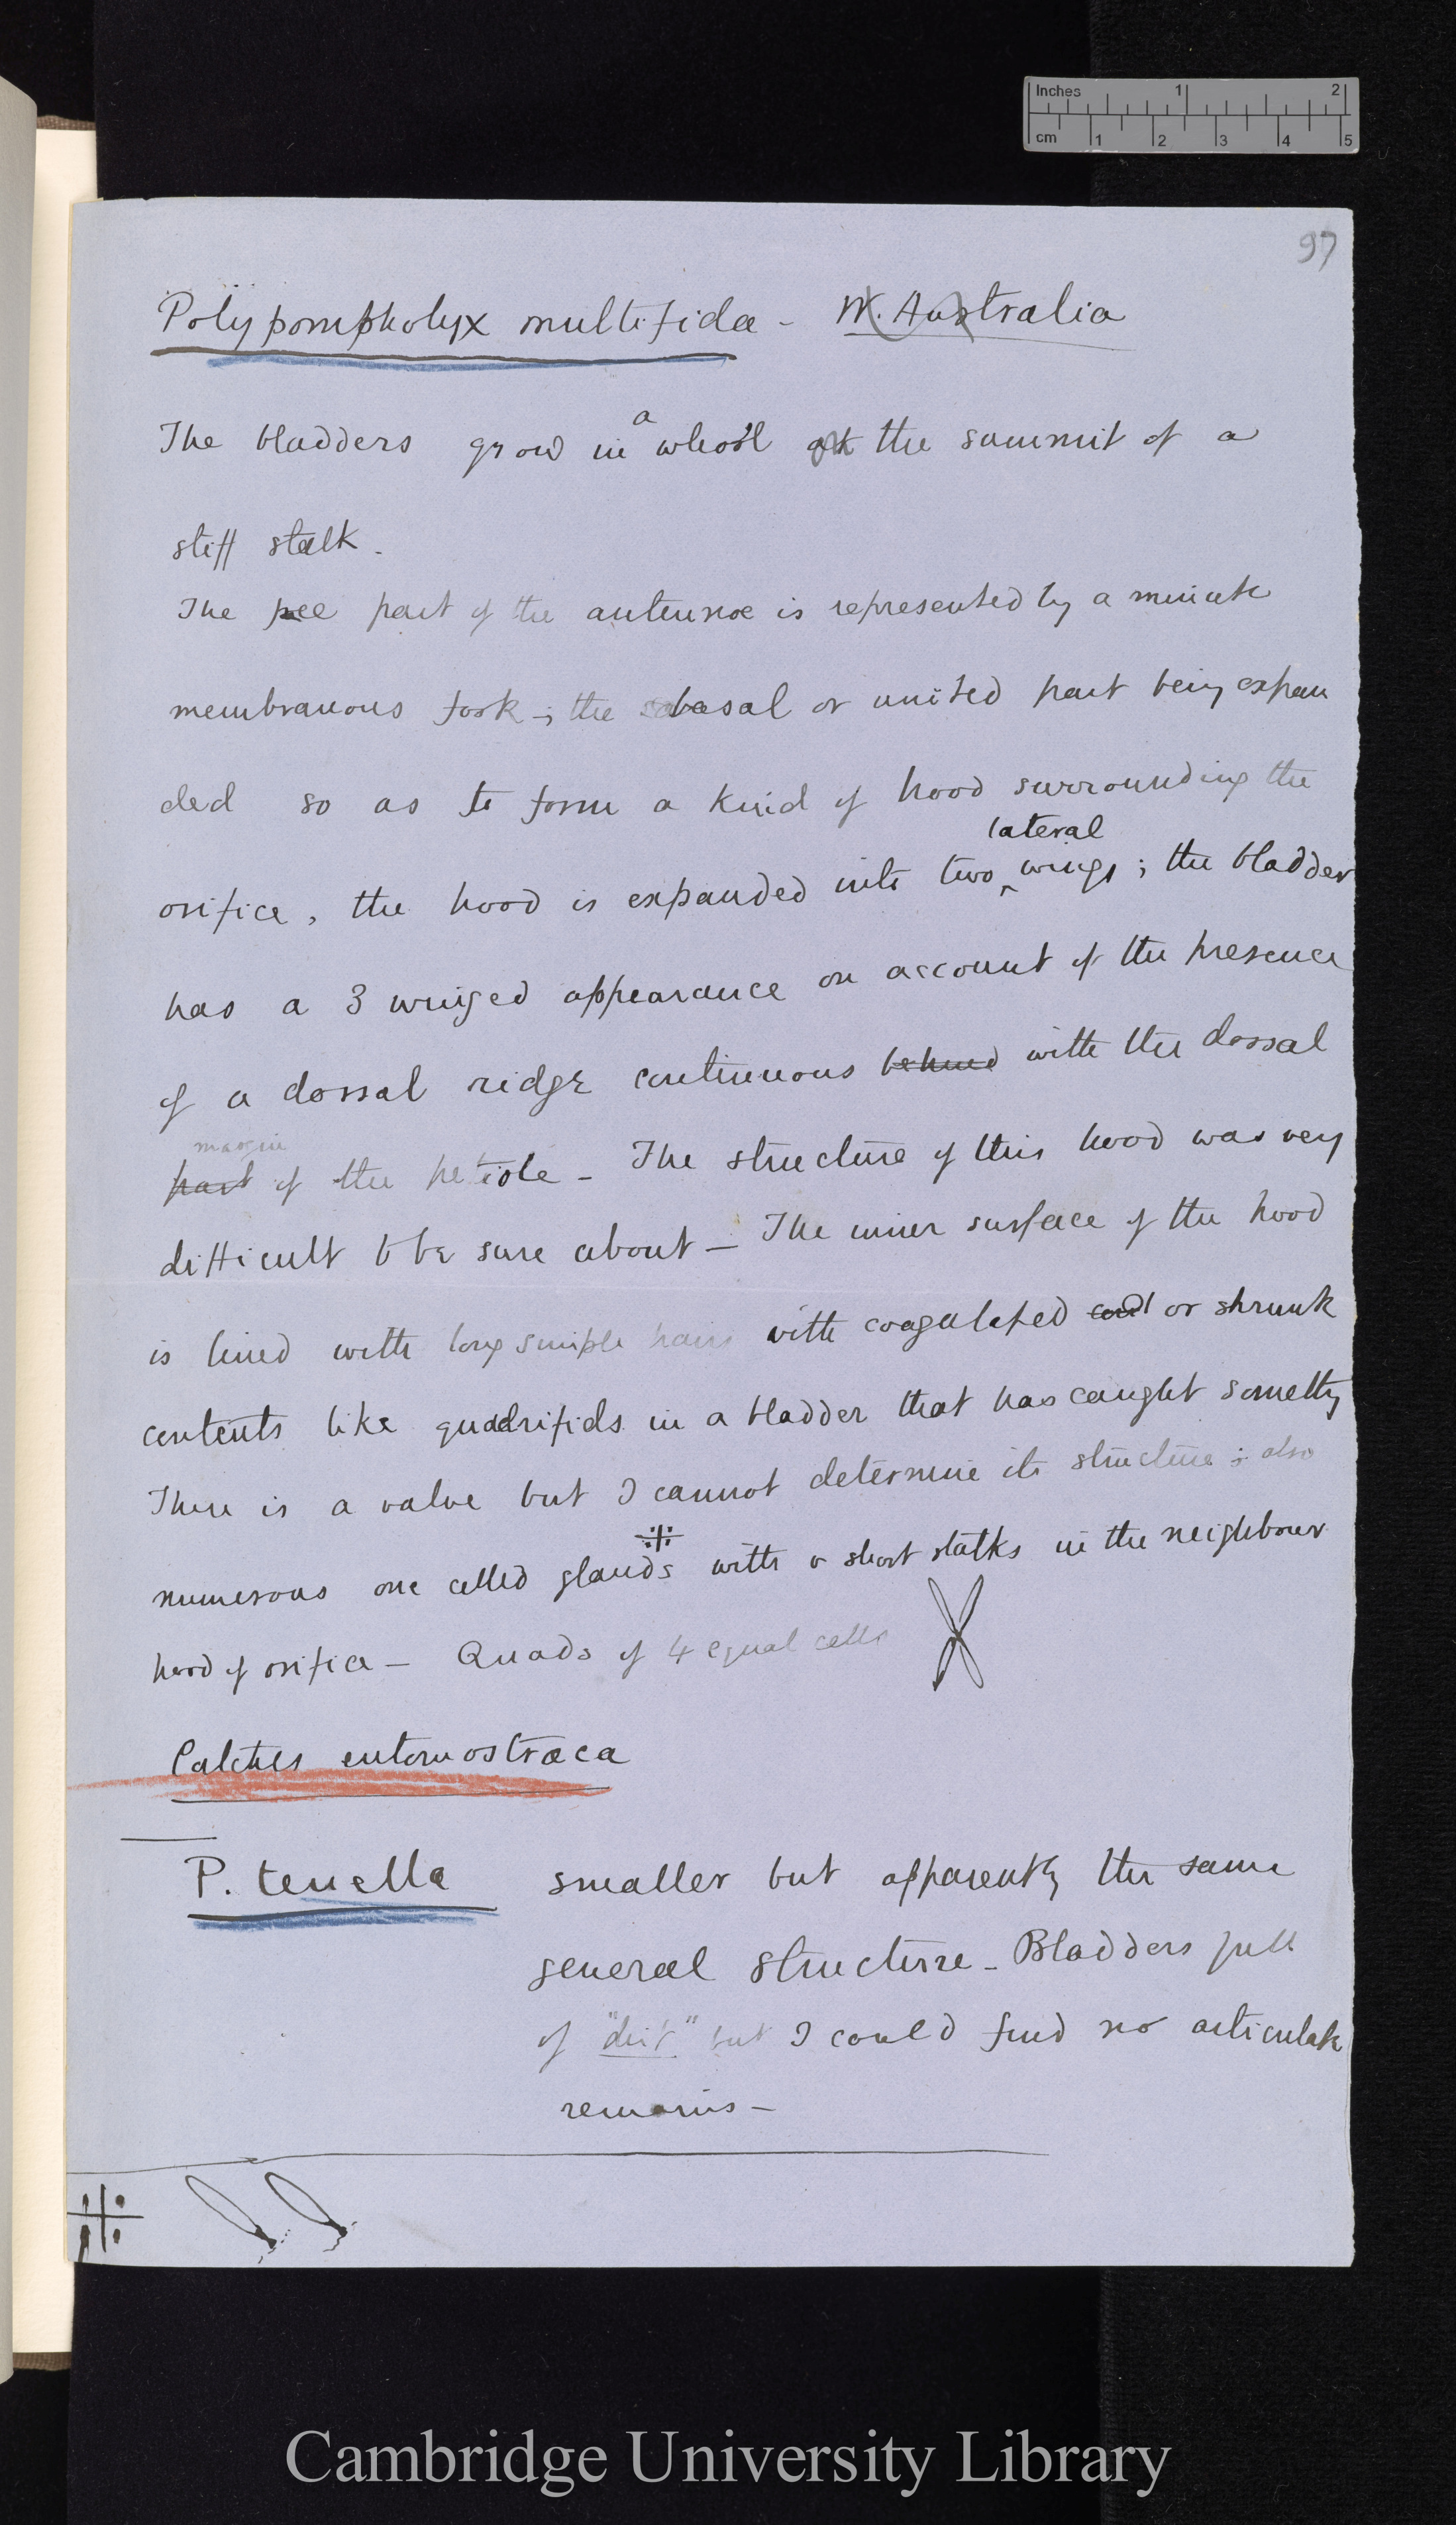 Inches 1 2
cm 1 2 3 4 5
97
Polypompholyx multifida - W. Australia
The bladders grow in a whorl at the summit of a
stiff stalk.
The free part of the antennae is represented by a minute
membranous fork -; the basal or united part being expan
ded so as to form a kind of hood surrounding the
lateral
orifice, the hood is expanded into two ‸ wings; the bladder
has a 3 winged appearance on account of the presence
of a dorsal ridge continuous behind with the dorsal
margin
part of the petiole - The structure of this hood was very
difficult to be sure about - The inner surface of the hood
is lined with long simple hairs with coagulated and or shrunk
contents like quadrifids in a bladder that has caught somethg
There is a valve but I cannot determine its structure; also
numerous one celled glands ※ with a short stalks in the neighbour
hood of orifice - Quads of 4 equal cells
Catches entomostraca
P. tenella smaller but apparently the same
general structure - Bladders full
of "dirt" but I could find no articulate
remains -
※
Cambridge University Library